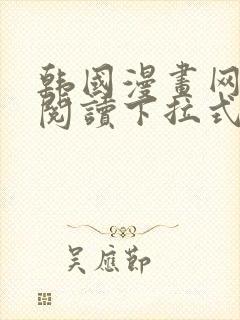 韩國漫畫网
閱讀下拉式
吴應節